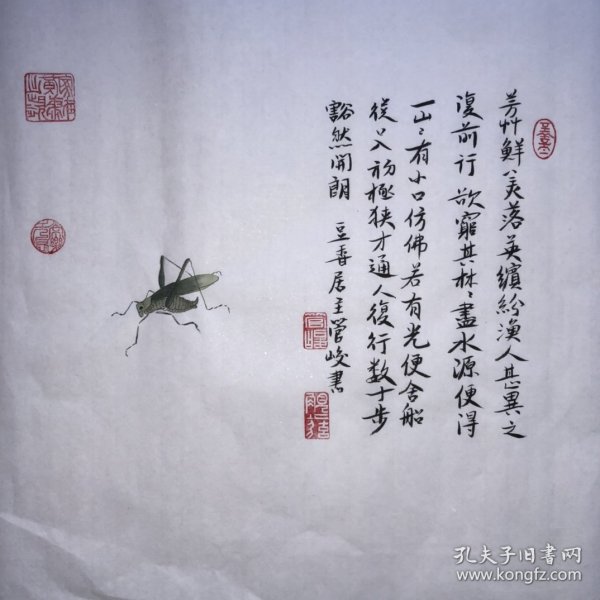 芳艸鮮美落英繽紛漁人甚異之
復前行欲窮其林〻盡水源便得
一山〻有小口仿佛若有光便舍船
從口入初極狹才通人復行数十步
豁然開朗 豆香居主管峻書
孔夫子旧书网
www.kongfz.com